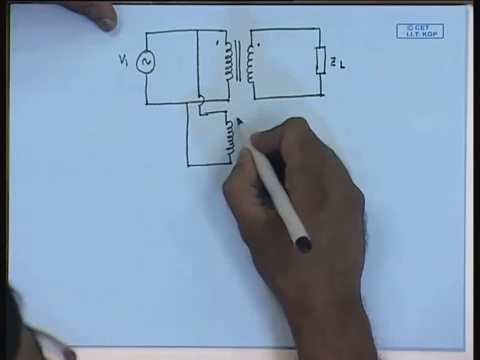 © CET
I.I.T. KGP
V₁
Z L